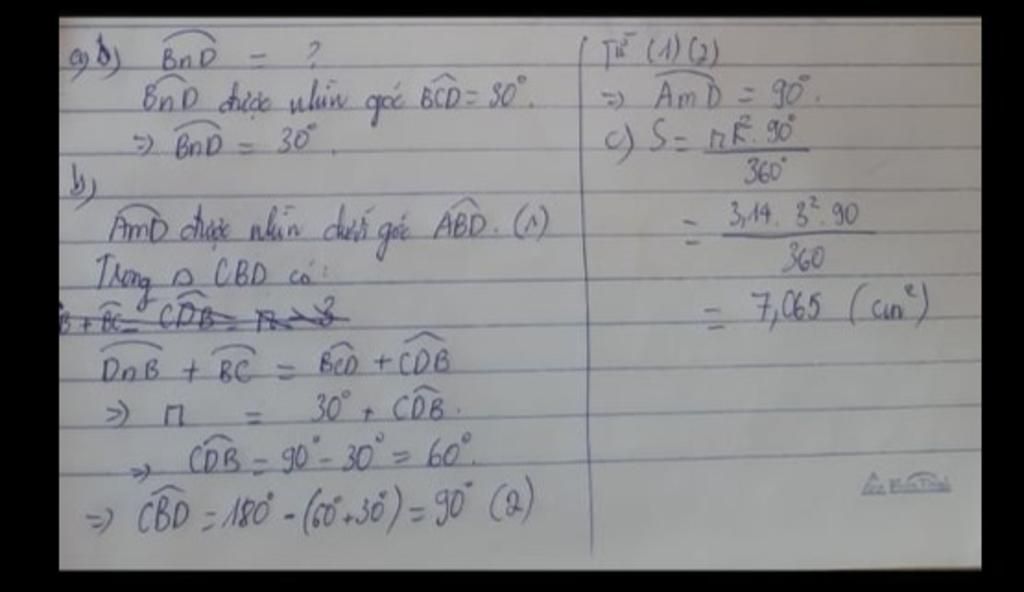 a) b) BnD = ?
BnD được nhìn góc BCD = 30°.
=> BnD = 30°.
b)
AmD được nhìn dưới góc ABD. (1)
Trong △ CBD có:
DnB + BC = BCD + CDB
=> π = 30° + CDB.
=> CDB = 90° - 30° = 60°.
=> CBD = 180° - (60° + 30°) = 90° (2)
Từ (1) (2)
=> AmD = 90°.
c) S = πR². 90° / 360°
= 3,14. 3². 90 / 360
= 7,065 (cm²)